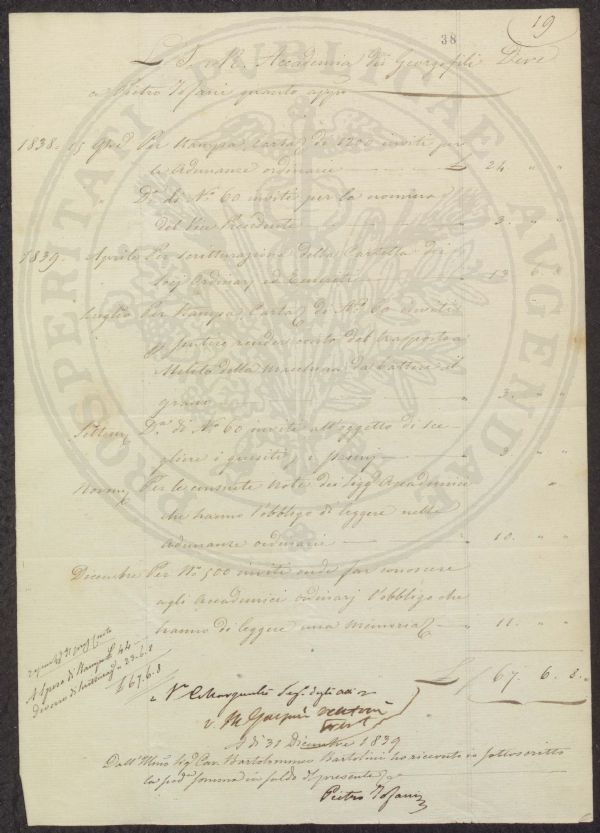 38
19
L' I. e R. Accademia dei Georgofili Deve
a Pietro Tofani quanto app.
1838. 15 Per Stampa, Carta di 1200 inviti per
le adunanze ordinarie £ 24. " "
" D.i di N.o 60 inviti per la nomina
del Vice Presidente " 3. " "
1839. Aprile Per scritturazione della Cartella dei
Socj Ordinarj ed Emeriti " 13. 6. 8
Luglio Per Stampa, Carta di N.o 60 inviti
p. sentire render conto del trasporto a
Meleto della Macchina da battere il
grano " 3. " "
Settem. D.a di N.o 60 inviti all'oggetto di sce-
gliere i quesiti, e premj " 3. " "
Novem. Per le consuete Note dei Sigg. Accademici
che hanno l'obbligo di leggere nelle
adunanze ordinarie " 10. "
Dicembre Per N.o 500 inviti onde far conoscere
agli Accademici ordinarj l'obbligo che
hanno di leggere una Memoria " 11. "
£ 67. 6. 8.
A Spese di Stampa £ 44
di scritturaz. 23.6.8
£ 67.6.8
Segr. degli atti
A dì 31 Dicembre 1839
Dall' Sig. Cav. Bartolommeo Bartolini ho ricevuto io sottoscritto
la sud. somma in saldo del presente
Pietro Tofani
PROSPERITATI PUBLICAE AUGENDAE